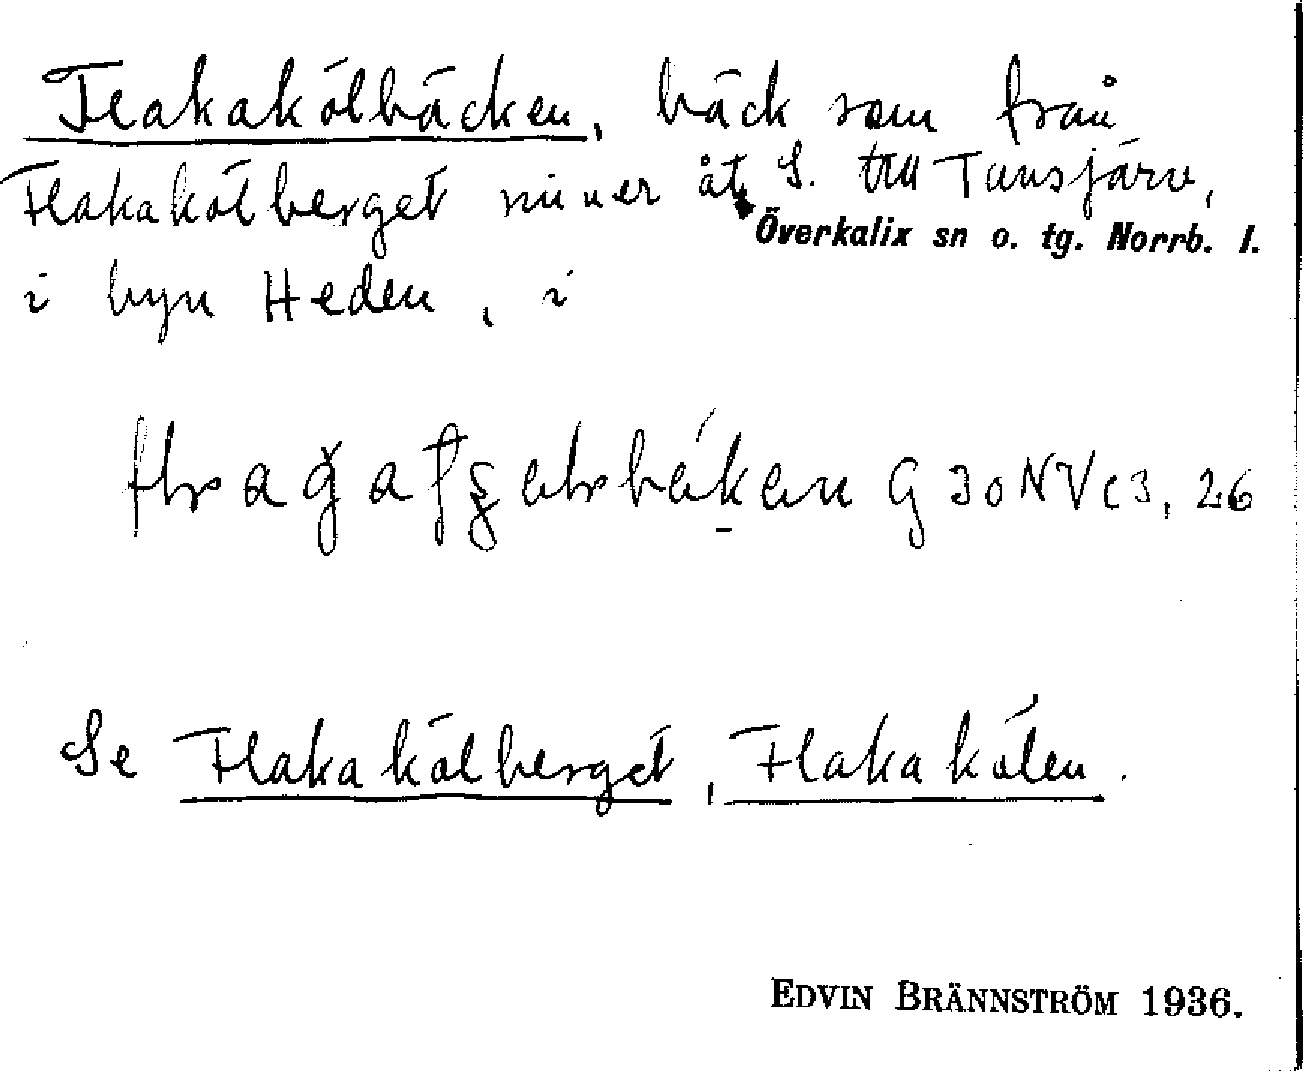 Flakakölbäcken, bäck som från
Flakakölberget rinner åt S. till Tansjärv,
Överkalix sn o. tg. Norrb. l.
i byn Heden, i
G 30 NV c 3, 26
Se Flakakölberget, Flakakölen.
EDVIN BRÄNNSTRÖM 1936.